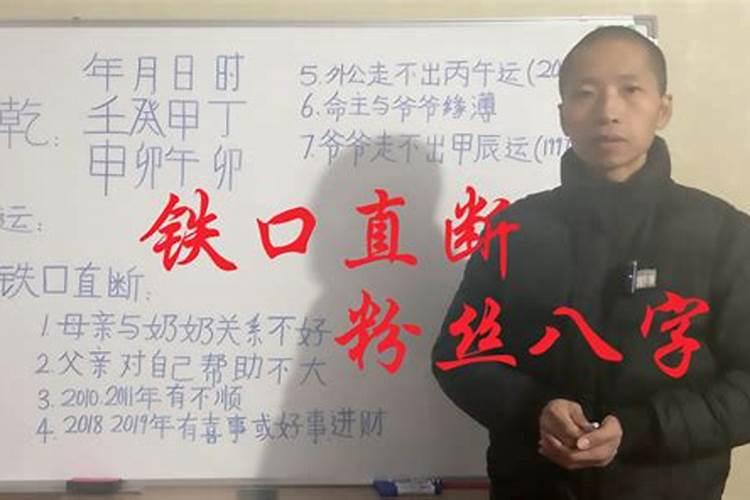 年月日时
乾: 壬癸甲丁
申卯午卯
运:
铁口直断:
1.母亲与奶奶关系不好
2.父亲对自己帮助不大
3.2010.2011年有不顺
4.2018 2019年有喜事或好事进财
5.外公走不出丙午运(20
6.命主与爷爷缘薄
7.爷爷走不出甲辰运(199
铁口直断
粉丝八字